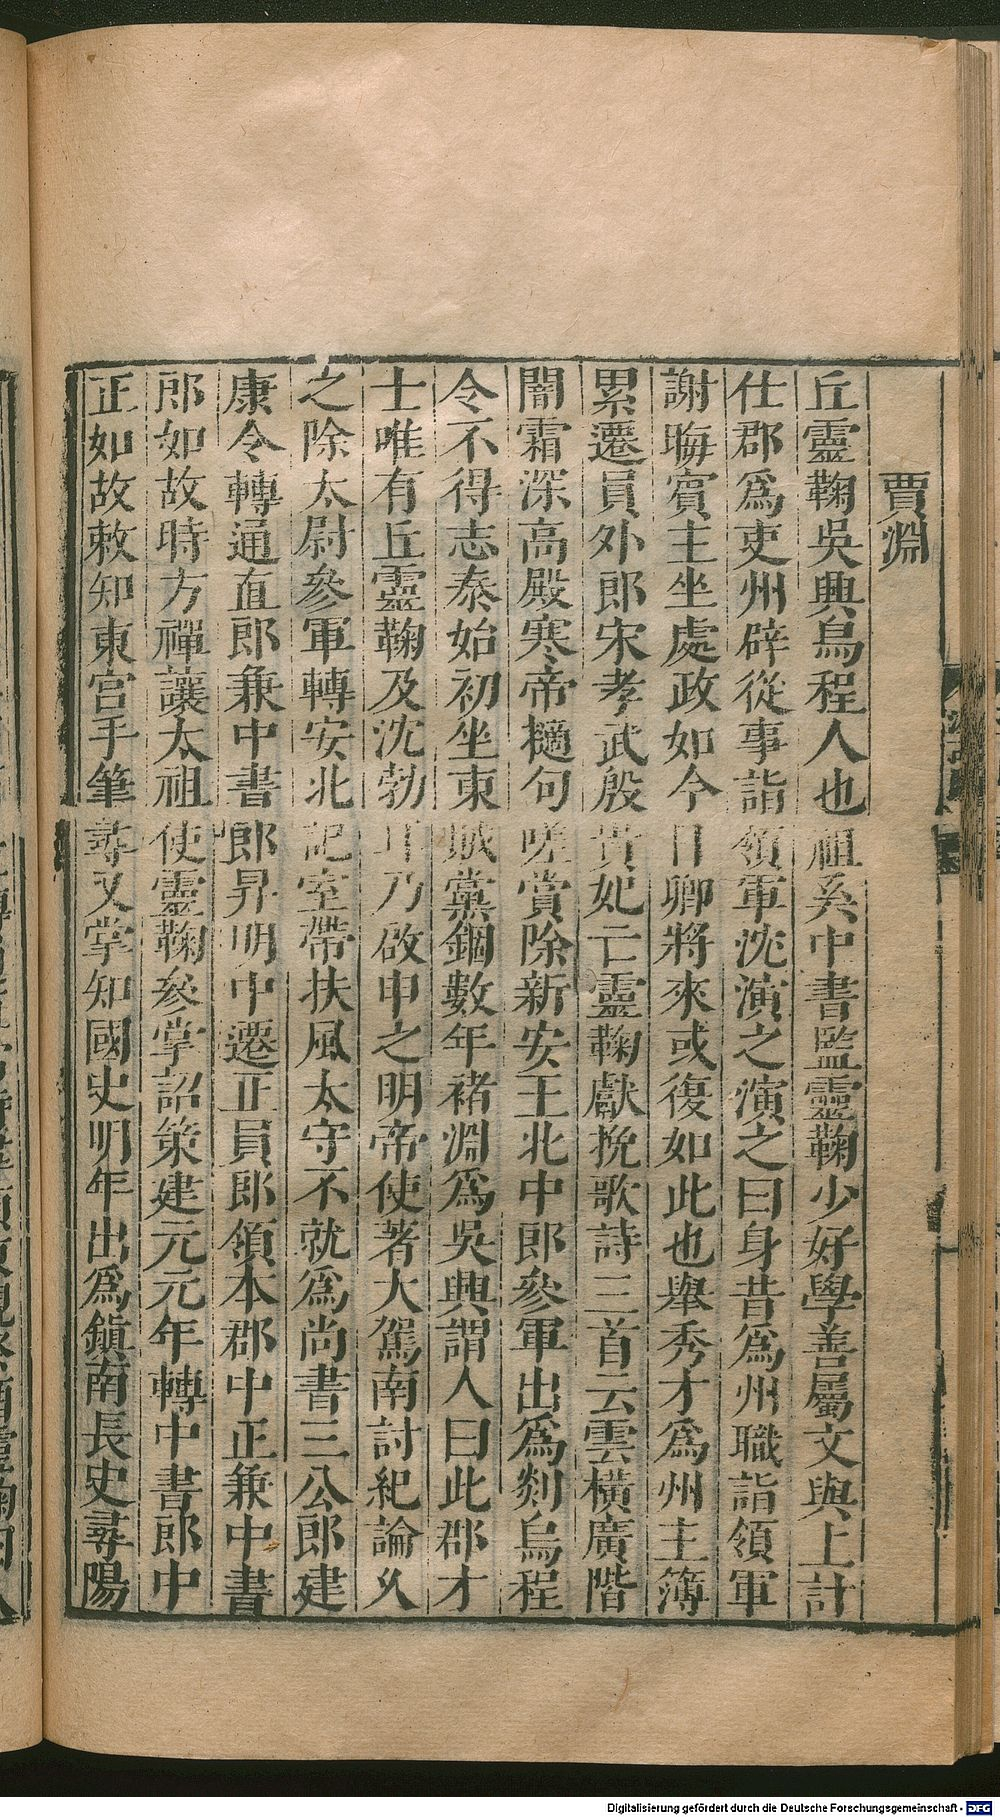 賈淵
丘靈鞠吳興烏程人也祖系中書監靈鞠少好學善屬文與上計
仕郡爲吏州辟從事詣領軍沈演之演之曰身昔爲州職詣領軍
謝晦賓主坐處政如今日卿將來或復如此也舉秀才爲州主簿
累遷員外郎宋孝武殷貴妃亡靈鞠獻挽歌詩三首云雲橫廣階
闇霜深高殿寒帝擿句嗟賞除新安王北中郎參軍出爲剡烏程
令不得志泰始初坐東賊黨錮數年褚淵爲吳興謂人曰此郡才
士唯有丘靈鞠及沈勃耳乃啟申之明帝使著大駕南討紀論久
之除太尉參軍轉安北記室帶扶風太守不就爲尚書三公郎建
康令轉通直郎兼中書郎昇明中遷正員郎領本郡中正兼中書
郎如故時方禪讓太祖使靈鞠參掌詔策建元元年轉中書郎中
正如故敕知東宮手筆尋又掌知國史明年出爲鎮南長史尋陽
Digitalisierung gefördert durch die Deutsche Forschungsgemeinschaft - DFG